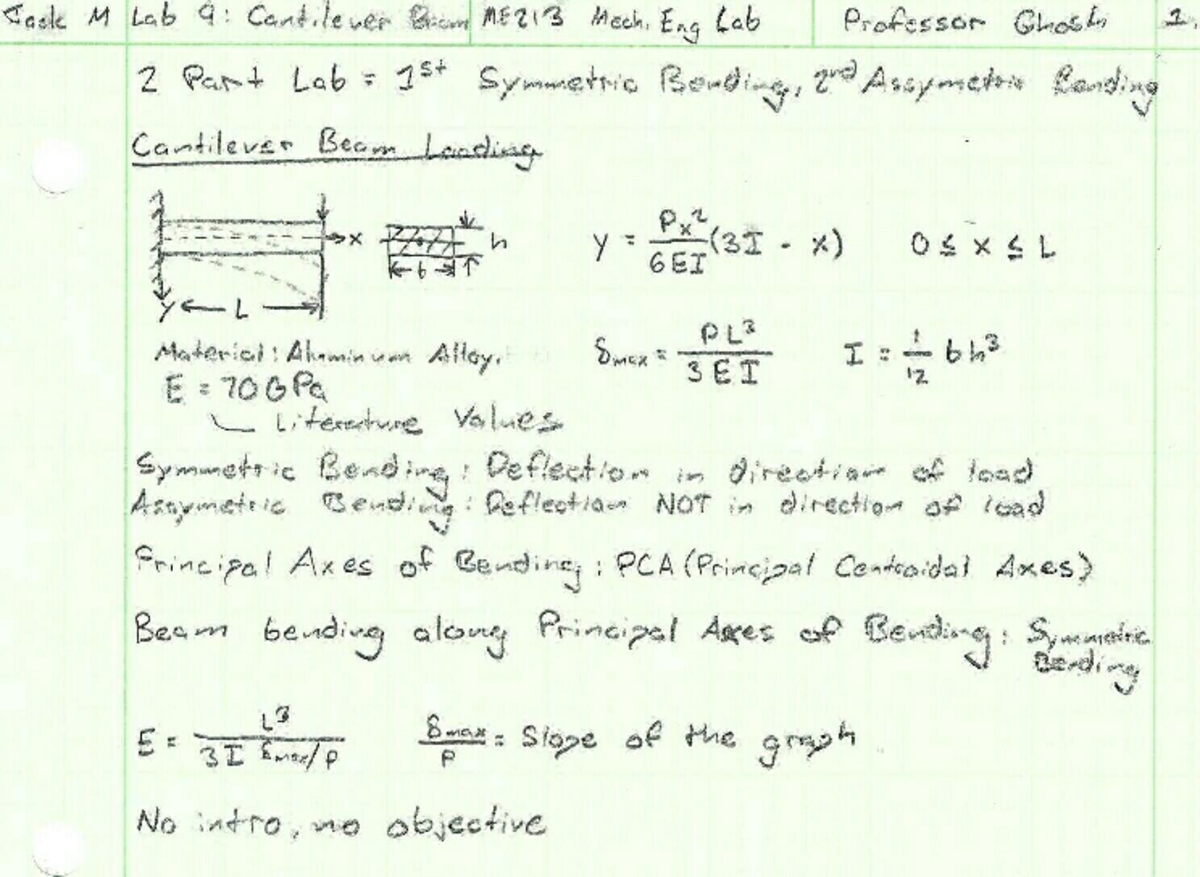 Jack M Lab 9: Cantilever Beam ME213 Mech. Eng Lab Professor Ghosh 1.
2 Part Lab = 1st Symmetric Bending, 2nd Assymetric Bending
Cantilever Beam Loading
x h b y L
y = Px²/6EI (3I - x) 0 ≤ x ≤ L
Material: Aluminum Alloy.
E = 70GPa
Literature Values
δmax = PL³/3EI I = 1/12 bh³
Symmetric Bending: Deflection in direction of load
Assymetric Bending: Deflection NOT in direction of load
Principal Axes of Bending: PCA (Principal Centroidal Axes)
Beam bending along Principal Axes of Bending: Symmetric
Bending
E = L³/3I δmax/P δmax/P = Slope of the graph
No intro, no objective